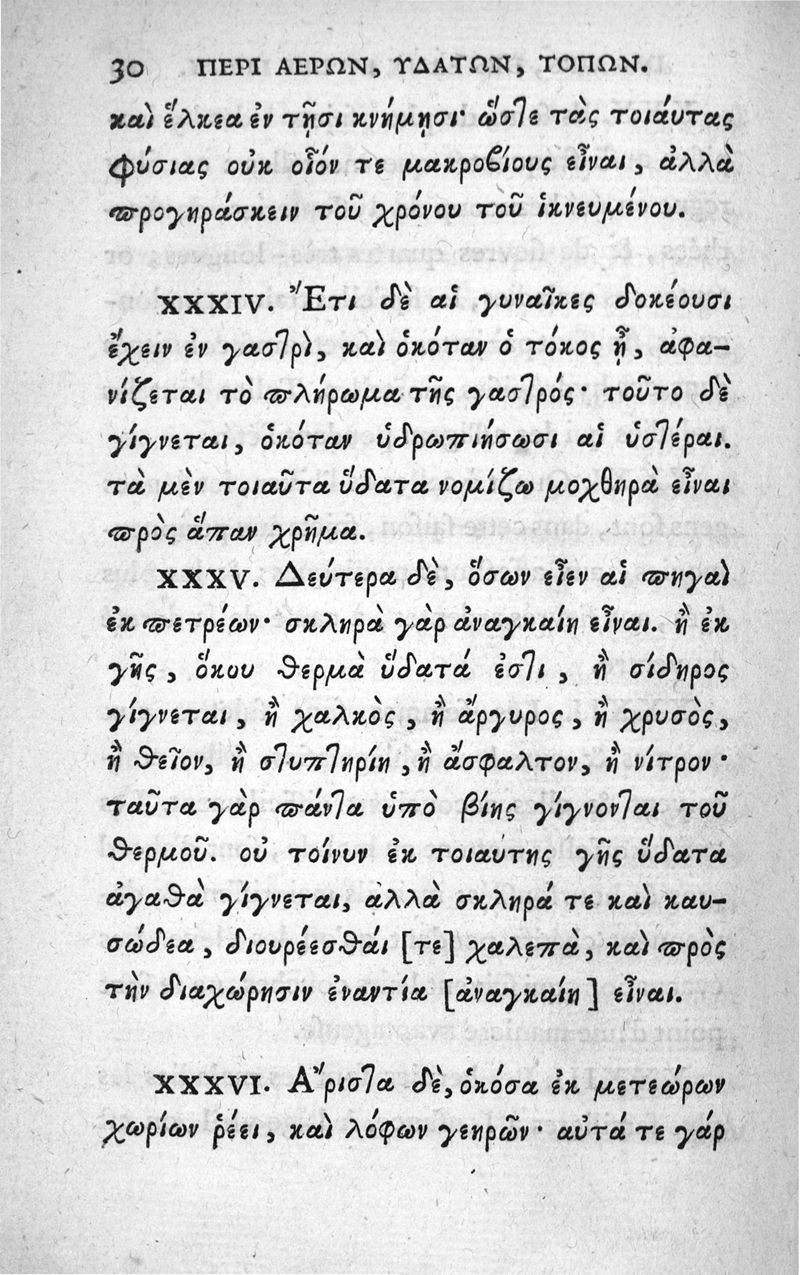 30 ΠΕΡΙ ΑΕΡΩΝ, ΥΔΑΤΩΝ, ΤΟΠΩΝ.
καὶ ἕλκεα ἐν τῇσι κνήμῃσι· ὥστε τὰς τοιάυτας
φύσιας οὐκ οἷόν τε μακροβίους εἶναι, ἀλλὰ
προγηράσκειν τοῦ χρόνου τοῦ ἱκνευμένου.
XXXIV. Ἔτι δὲ αἱ γυναῖκες δοκέουσι
ἔχειν ἐν γαστρὶ, καὶ ὁκόταν ὁ τόκος ᾖ, ἀφα-
νίζεται τὸ πλήρωμα τῆς γαστρός· τοῦτο δὲ
γίγνεται, ὁκόταν ὑδρωπιήσωσι αἱ ὑστέραι.
τὰ μὲν τοιαῦτα ὕδατα νομίζω μοχθηρὰ εἶναι
πρὸς ἅπαν χρῆμα.
XXXV. Δεύτερα δὲ, ὅσων εἶεν αἱ πηγαὶ
ἐκ πετρέων· σκληρὰ γὰρ ἀναγκαίη εἶναι. ἢ ἐκ
γῆς, ὅκου θερμὰ ὕδατά ἐστι, ἢ σίδηρος
γίγνεται, ἢ χαλκὸς, ἢ ἄργυρος, ἢ χρυσὸς,
ἢ θεῖον, ἢ στυπτηρίη, ἢ ἄσφαλτον, ἢ νίτρον·
ταῦτα γὰρ πάντα ὑπὸ βίης γίγνονται τοῦ
θερμοῦ. οὐ τοίνυν ἐκ τοιαύτης γῆς ὕδατα
ἀγαθὰ γίγνεται, ἀλλὰ σκληρά τε καὶ καυ-
σώδεα, διουρέεσθάι [τε] χαλεπὰ, καὶ πρὸς
τὴν διαχώρησιν ἐναντία [ἀναγκαίη] εἶναι.
XXXVI. Ἄριστα δὲ, ὁκόσα ἐκ μετεώρων
χωρίων ῥέει, καὶ λόφων γεηρῶν· αὐτά τε γάρ